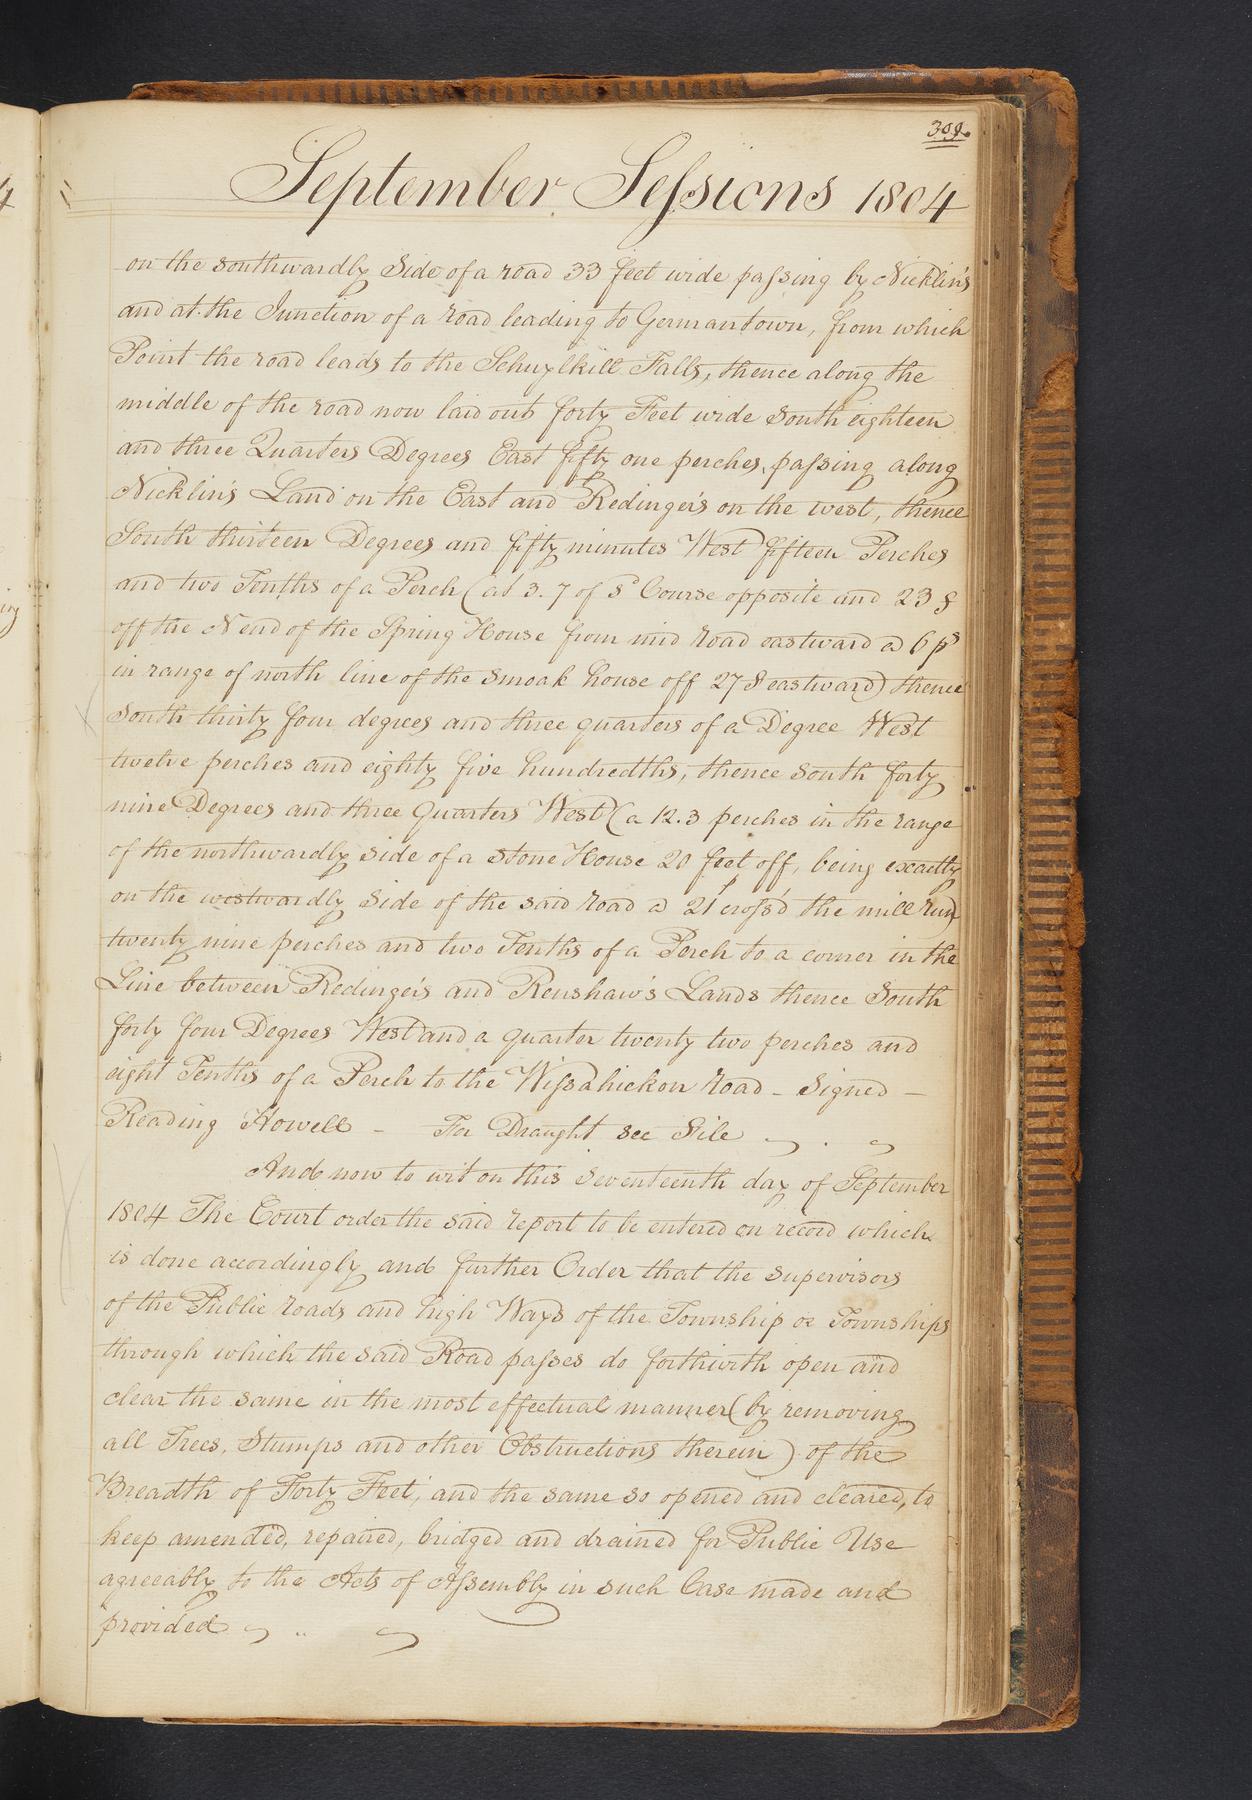 309.
September Sessions 1804
on the southwardly Side of a road 33 feet wide passing by Nicklin's
and at the Junction of a road leading to Germantown, from which
Point the road leads to the Schuylkill Falls, thence along the
middle of the road now laid out forty Feet wide South eighteen
and three Quarters Degrees East fifty one perches, passing along
Nicklin's Land on the East and Redinger's on the west, thence
South thirteen Degrees and fifty minutes West fifteen Perches
and two Tenths of a Perch (at 3.7 of s Course opposite and 23 f
off the N end of the Spring House from mid road eastward a 6 ps
in range of north line of the smoak house off 27 f eastward) thence
South thirty four degrees and three quarters of a Degree West
twelve perches and eighty five hundredths, thence South forty
nine Degrees and three Quarters West (a 12.3 perches in the range
of the northwardly side of a stone House 20 feet off, being exactly
on the westwardly Side of the said road a 21 p cross'd the mill run)
twenty nine perches and two Tenths of a Perch to a corner in the
Line between Redinger's and Renshaw's Lands thence South
forty four Degrees West and a quarter twenty two perches and
eight Tenths of a Perch to the Wissahickon road - Signed -
Reading Howell - For Draught see File
And now to wit on this Seventeenth day of September
1804 The Court order the said report to be entered on record which
is done accordingly and further Order that the supervisors
of the Public roads and high Ways of the Township or Townships
through which the said Road passes do forthwith open and
clear the same in the most effectual manner (by removing
all Trees, Stumps and other Obstructions therein) of the
Breadth of Forty Feet, and the same so opened and cleared, to
keep amended, repaired, bridged and drained for Public Use
agreeably to the Acts of Assembly in such Case made and
provided